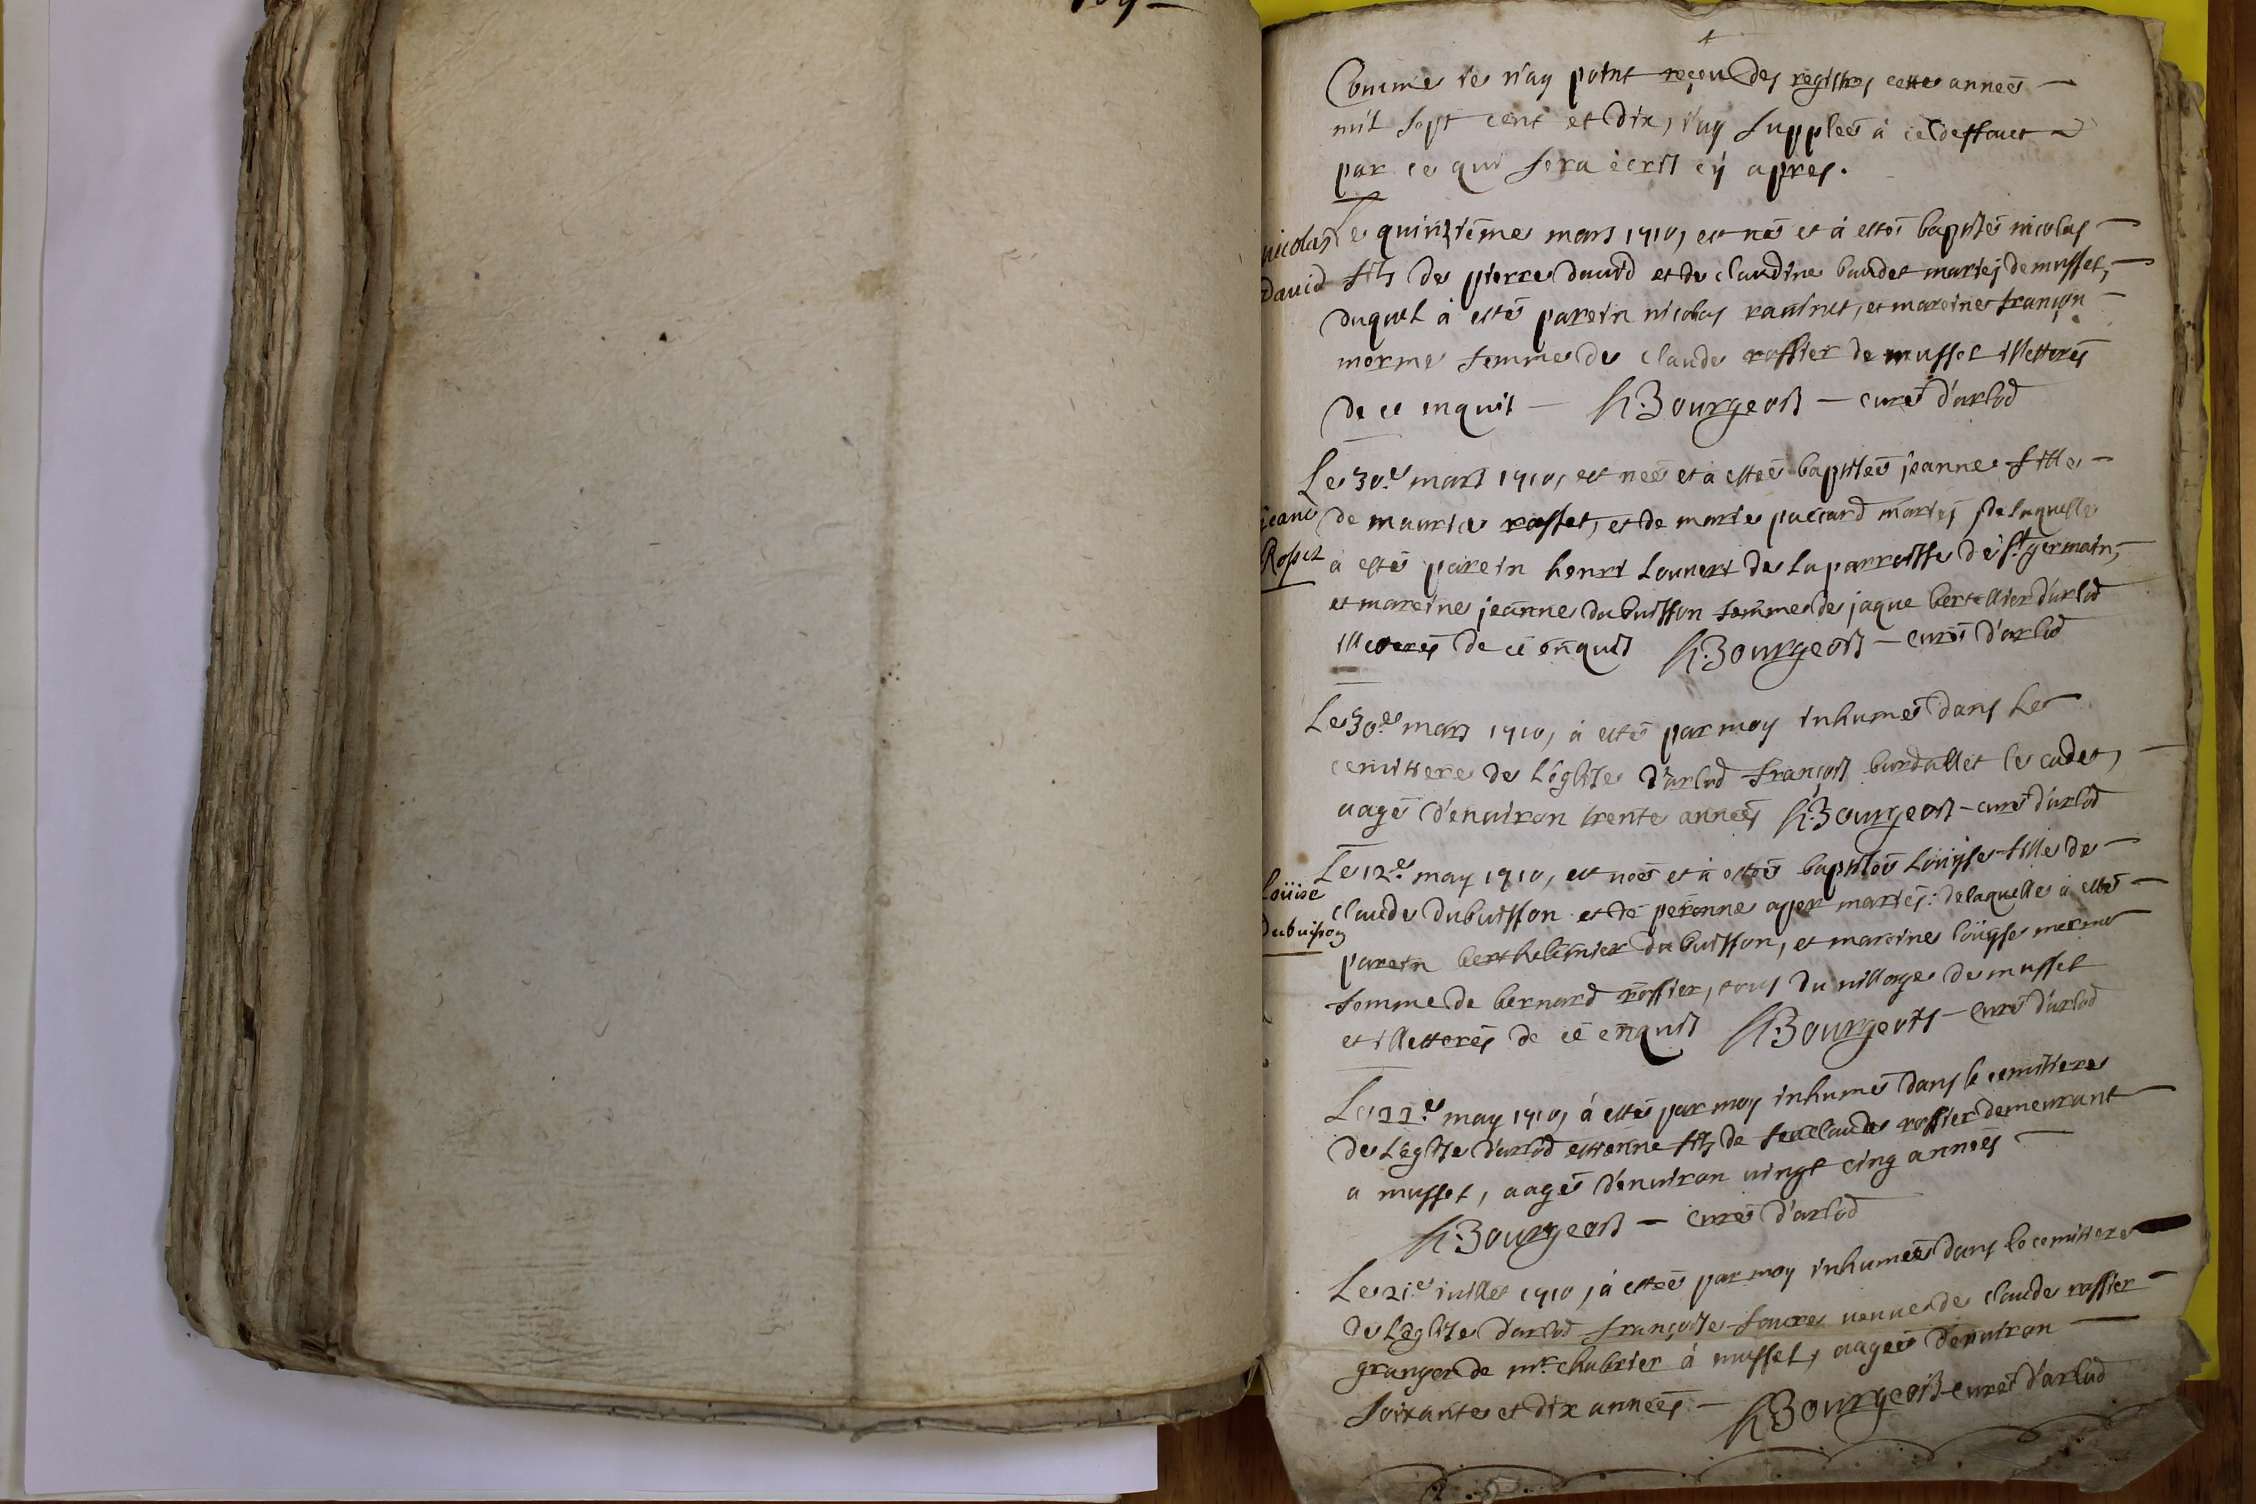 Comme ie n'ay point reçeu des registres cette anneé
mil sept cent et dix, i'ay suppleé à ce deffaut
par ce qui sera écrit cÿ apres.
nicolas
david
Le quinziéme mars 1710, est né et à esté baptisé nicolas
fils de pierre david et de claudine baudet mariés de musset,
duquel à esté parein nicolas ravinet, et mareine françon
morme femme de claude rossier de musset illetterés
de ce enquis — h. Bourgeois — curé d'arlod
Le 30.e mars 1710, est neé et à esteé baptiseé jeanne fille
jeane
Rosset
de maurice rosset, et de marie paccard mariés, de laquelle
à esté parein henri Louvert de la parroisse de st germain,
et mareine jeanne dubuisson femme de jaque bertellier d'arlod
illetterés de ce enquis h. Bourgeois — curé d'arlod
Le 30.e mars 1710, à esté par moy inhumé dans Le
cemitiere de L'églite d'arlod françois burdallet le cadet,
aagé d'environ trente anneés h. Bourgeois — curé d'arlod
Le 12.e may 1710, est neé et à esteé baptiseé Loüyse fille de
Loüise
dubuisson
claude dubuisson et de peronne ayer mariés: de laquelle à esté
parein berthelemier dubuisson, et mareine loüyse mermo
femme de bernard rossier, tous du village de musset
et illetterés de ce enquis h. Bourgeois — curé d'arlod
Le 22.e may 1710, à esté par moy inhumé dans le cemitiere
de L'églite d'arlod estienne fils de feu claude rossier demeurant
a musset, aagé d'environ vingt cinq anneés —
h. Bourgeois — curé d'arlod
Le 21.e iuillet 1710, à esteé par moy inhumeé dans le cemitiere
de L'églite d'arlod françoise veuve de claude rossier
granger de mr. chabrier à musset, aageé d'environ
soixante et dix anneés — h. Bourgeois curé d'arlod